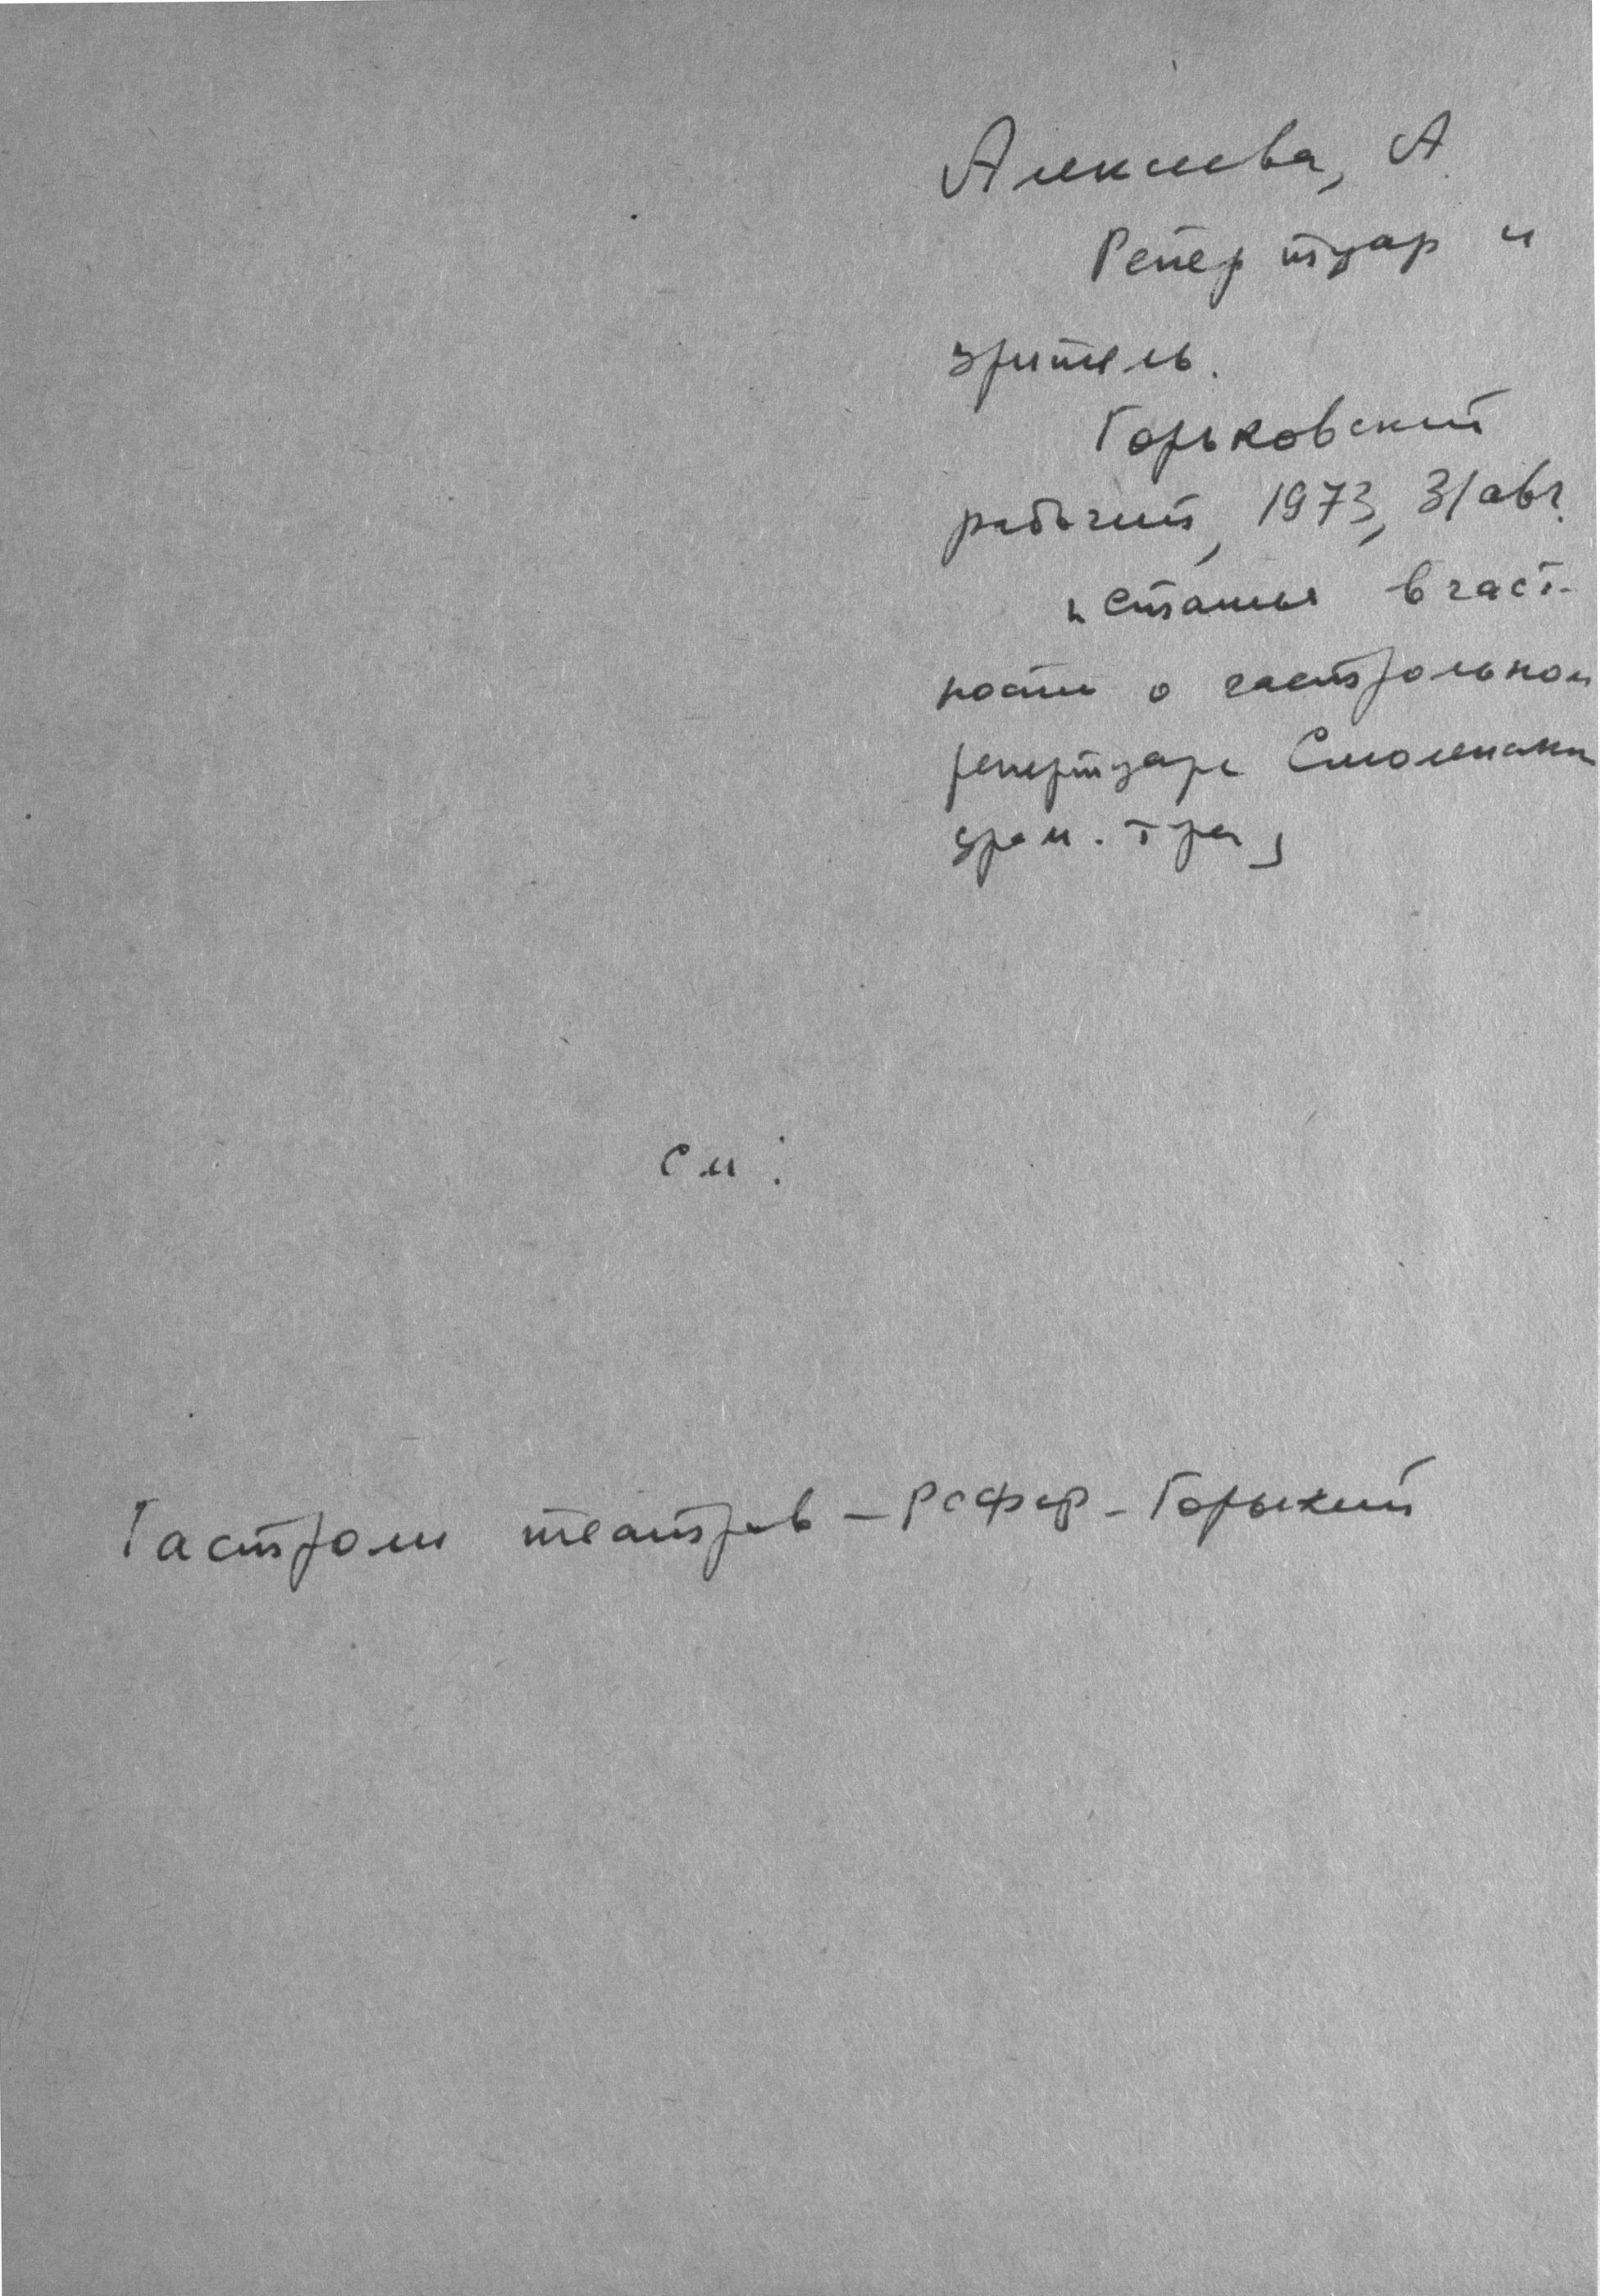 Алексеева, А.
Репертуар и
зритель.
Горьковский
рабочий, 1973, 31 авг.
[Статья в част-
ности о гастрольном
репертуаре Смоленск
драм. т-ра]
см:
Гастроли театров – РСФСР – Горький